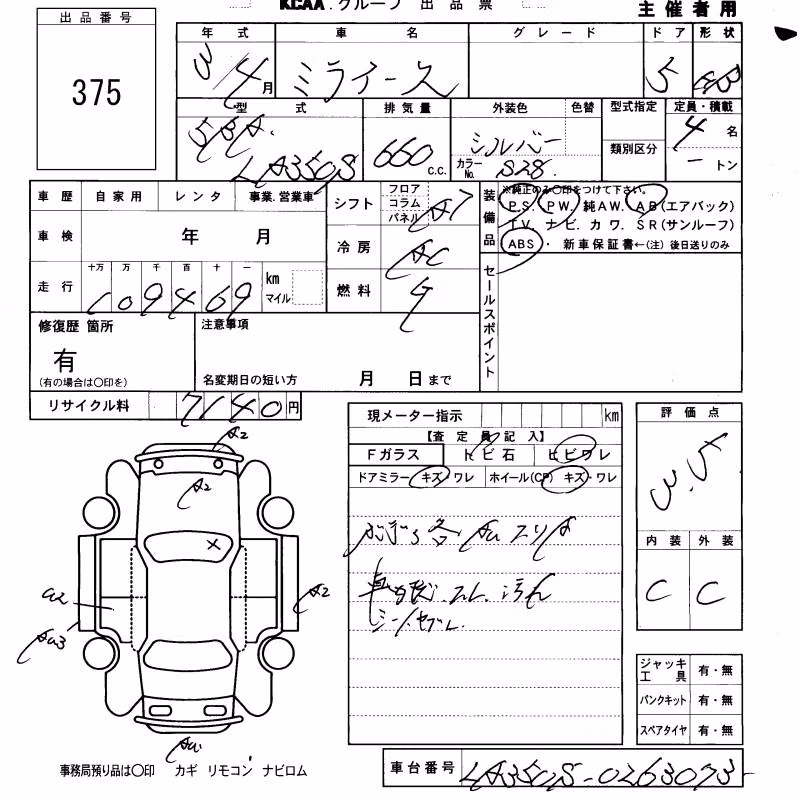 KCAA.グループ 出品票 主催者用
出品番号
375
年式 車名 グレード ドア 形状
3/4月 ミライース 5
型式 排気量 外装色 色替 型式指定 定員・積載
5BA LA350S 660 C.C. シルバー 4名
カラーNo. S28 類別区分 ートン
車歴 自家用 レンタ 事業.営業車
シフト フロア コラム パネル AT
車検 年 月
冷房 AC
走行 十万 万 千 百 十 一 km マイル
109469
燃料 G
装備品
※純正のみ〇印をつけて下さい。
P.S. PW. 純AW. AB(エアバック)
TV. ナビ. カワ. SR(サンルーフ)
ABS・ 新車保証書←(注) 後日送りのみ
セールスポイント
修復歴 箇所
有
(有の場合は〇印を)
注意事項
名変期日の短い方 月 日まで
リサイクル料 7140円
現メーター指示 km
【査定員記入】
Fガラス トビ石 ヒビワレ
ドアミラー キズ・ワレ ホイール(CP) キズ・ワレ
各AUスリキ
スレ.汚れ
評価点
3.5
内装 外装
C C
A2
A2
X
A2
U2
AU3
AU
ジャッキ工具 有・無
パンクキット 有・無
スペアタイヤ 有・無
事務局預り品は〇印 カギ リモコン ナビロム
車台番号 LA350S-0263073-